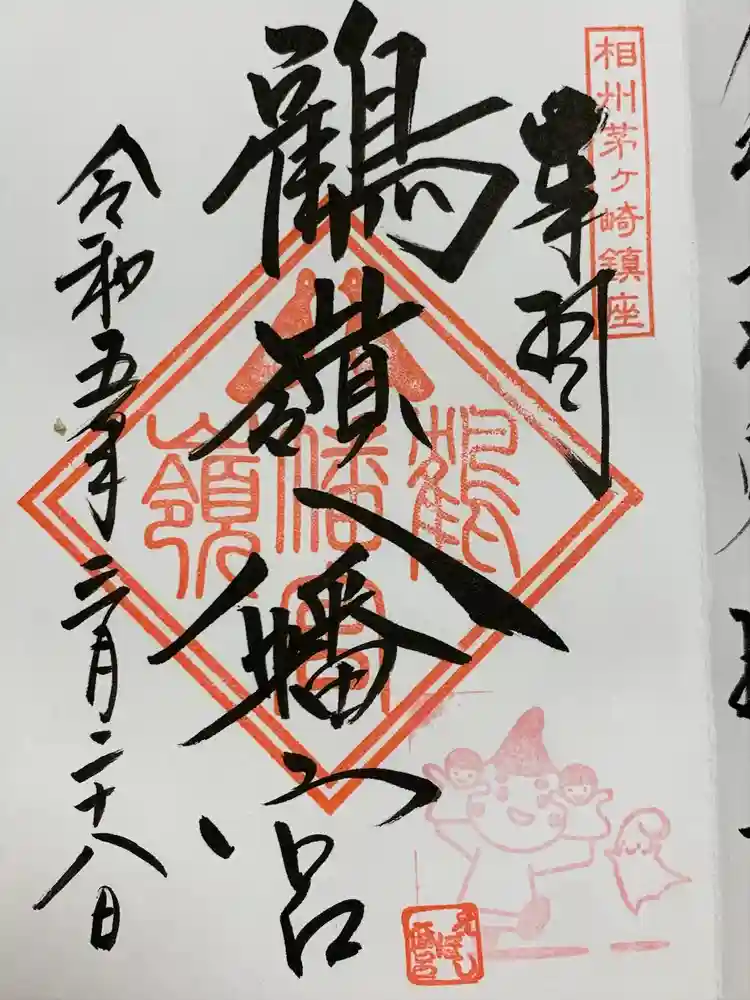 相州茅ヶ崎鎮座
奉拝
鶴嶺八幡宮
鶴
八幡宮
嶺
令和五年三月二十八日
えぼし